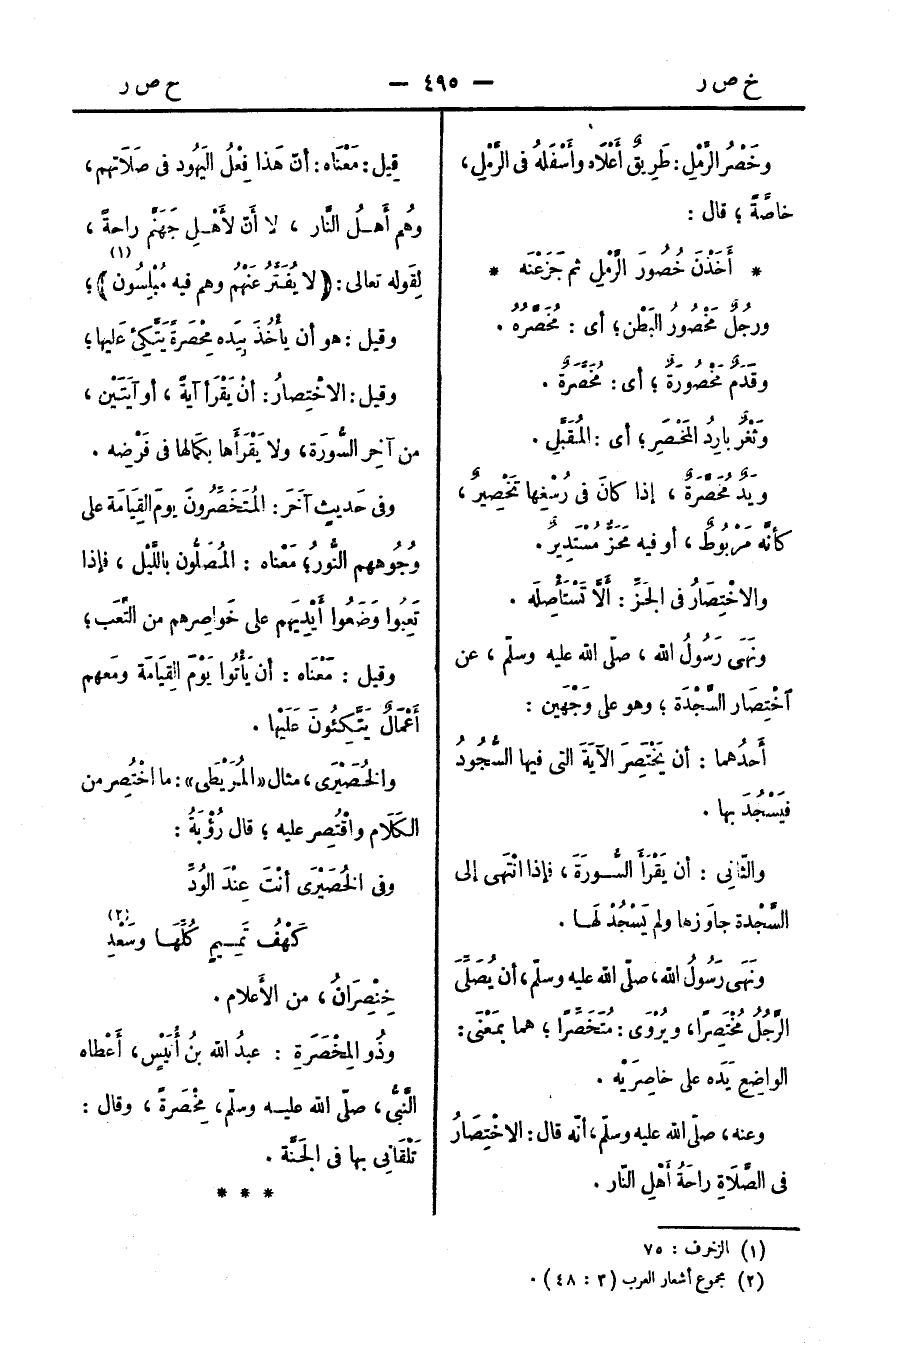 خ ص ر
— ٤٩٥ —
ح ص ر
وخَصْرُ الرَّمْلِ: طَرِيقٌ أَعْلَاه وأَسْفَلَهُ فى الرَّمْلِ،
خاصَّةً ؛ قال :
* أَخَذْنَ خُصُورَ الرَّمْلِ ثم جَزَعْنَه *
ورجُلٌ مَخْصُورُ البَطْنِ؛ أى : مُخَصَّرُهُ .
وقَدَمٌ مَخْصُورَةٌ ؛ أى : مُخَصَّرَةٌ .
وَثَغْرٌ بارِدُ المَخْصَرِ ؛ أى : المُقَبَّلِ .
ويَدٌ مُخَصَّرَةٌ ، إذا كانَ فى رُسْغِها تَخْصِيرٌ ،
كأَنَّه مَرْبُوطٌ ، أو فيه مَحَزٌّ مُسْتَدِيرٌ .
والاخْتِصَارُ فى الجَزِّ : أَلَّا تَسْتَأْصِلَه .
ونَهَى رَسُولُ الله ، صلّى الله عليه وسلّم ، عن
ٱخْتِصَار السَّجْدَة ؛ وهو على وَجْهَين :
أَحدُهما : أن يَخْتَصِرَ الآيَةَ التى فيها السُّجُودُ
فيَسْجُدَ بها .
والثّانِى : أن يَقْرَأَ السُّورَةَ ، فإذا انْتَهى إلى
السَّجْدة جاوَزها ولم يَسْجُدْ لَها .
ونَهَى رَسُولُ الله، صلّى الله عليه وسلّم، أن يُصَلِّىَ
الرَّجُلُ مُخْتَصِرًا، ويُرْوَى : مُتَخَصِّرًا ؛ هما بمَعْنًى :
الواضِعِ يَدَه على خاصِرَتِه .
وعنه ، صلّى الله عليه وسلّم، أنّه قال: الاخْتِصَارُ
فى الصَّلَاةِ راحَةُ أَهْلِ النّار .
قِيل: مَعْنَاه: أنّ هَذا فِعْلُ اليَهُود فى صَلَاتهم ،
وهُم أَهـلُ النَّار ، لا أَنّ لأَهْـلِ جَهَنَّم راحةً ،
لِقوله تعالى: ﴿ لا يُفَتَّرُ عَنْهُمْ وهم فيه مُبْلِسُون ﴾(١)؛
وقيل : هو أن يأْخُذَ بِيَده مِخْصَرَةً يَتَّكِئ عَليها ؛
وقيل: الاخْتِصارُ: أنْ يَقْرَأ آيةً ، أو آيَتَيْن ،
من آخِر السُّورَة، ولا يَقْرَأَها بكَمالها فى فَرْضِه .
وفى حَديثٍ آخَرَ: المُتَخَصِّرُونَ يومَ القِيَامَة على
وُجُوههم النُّورُ؛ مَعْناه : المُصَلُّون باللَّيْل ، فإذا
تَعِبُوا وَضَعُوا أَيْدِيَهم على خَواصِرهم من التَّعَب ؛
وقيل : مَعْنَاه : أن يَأْتُوا يَوْمَ القِيَامَة ومَعهم
أَعْمَالٌ يَتَّكِئُونَ عَلَيْها .
والخُصَيْرَى ، مثال «المُرَيْطَى»: ما اخْتُصِر من
الكَلَام واقْتُصِر عليه ؛ قال رُؤْبَةُ :
وفى الخُصَيْرَى أَنْتَ عِنْدَ الوُدِّ
كَهْفُ تَمِـيمٍ كُلِّهَـا وسَعْدِ(٢)
خِنْصِرَانُ ، من الأَعلام .
وذُو المِخْصَرَةِ : عبدُ الله بنُ أُنَيْسٍ ، أَعْطاه
النَّبىُّ ، صلّى الله عليـه وسلّم، مِخْصَرةً ، وقال :
تَلْقَانِى بها فى الجَنَّة .
* * *
(١) الزخرف : ٧٥
(٢) مجموع أشعار العرب (٣ : ٤٨) .